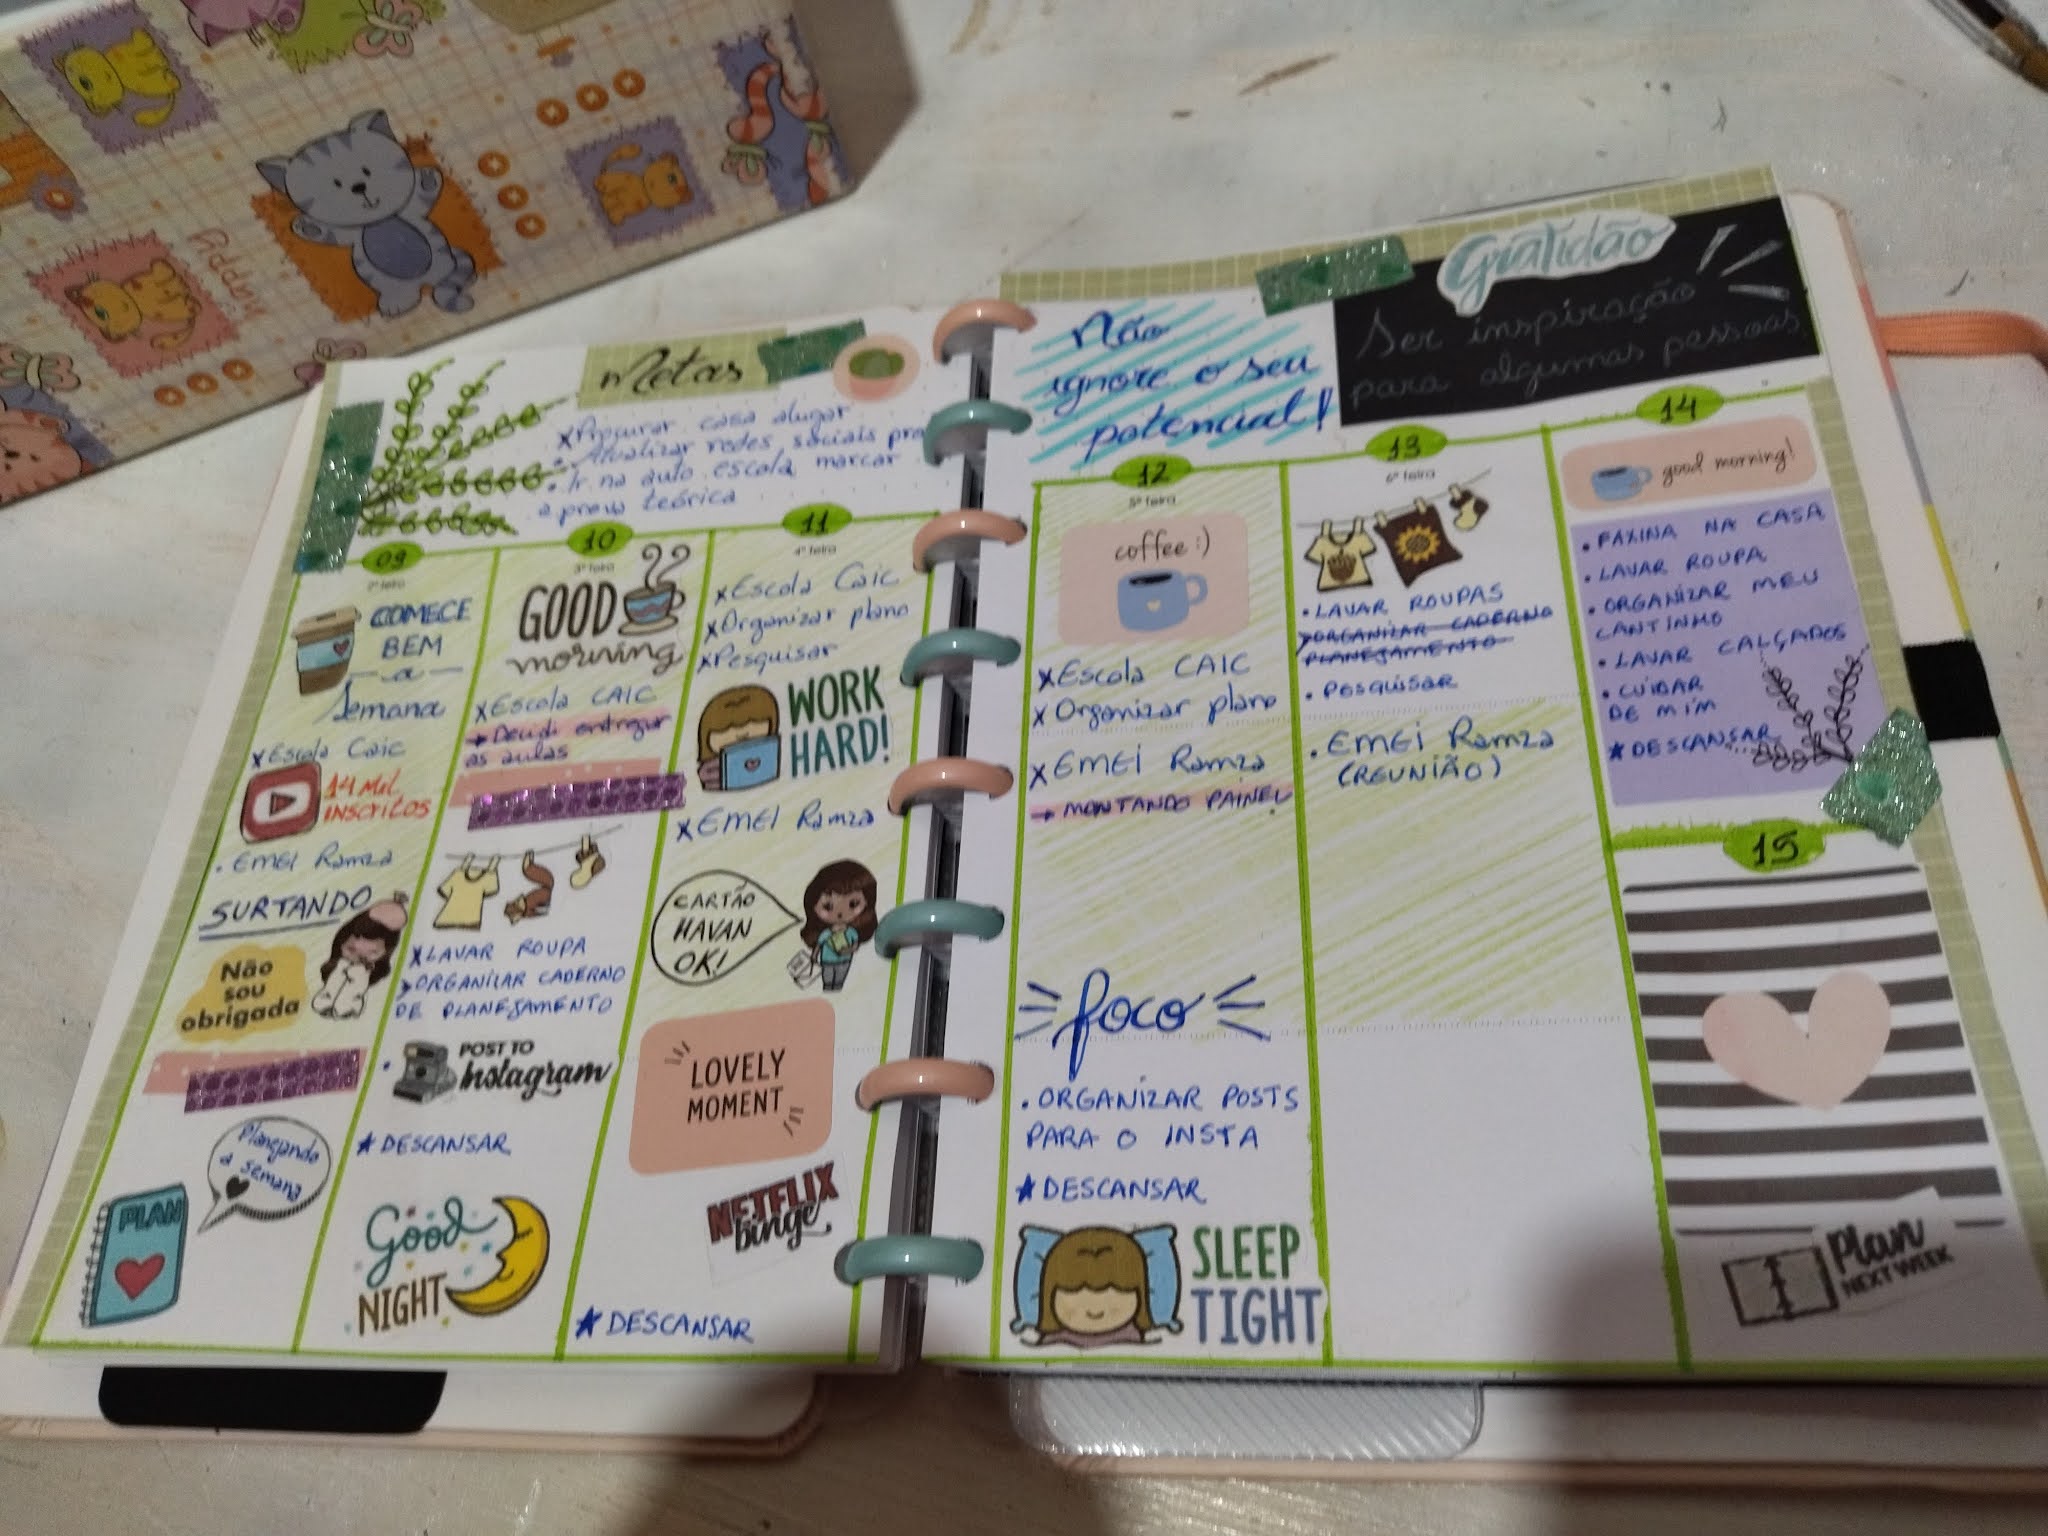 Piddny
Metas
x Procurar casa alugar
• Atualizar redes sociais pro
• Ir na auto escola marcar
a prova teórica
09
2ª feira
COMECE
BEM
a
Semana
x Escola Caic
14 mil
inscritos
• EMEI Ramza
SURTANDO
Não
sou
obrigada
Planejando
a semana
PLAN
10
3ª feira
GOOD
morning
x Escola CAIC
→ Decidi entregar
as aulas
x LAVAR ROUPA
> ORGANIZAR CADERNO
DE PLANEJAMENTO
• POST TO
Instagram
★ DESCANSAR
Good
NIGHT
11
4ª feira
x Escola Caic
x Organizar plano
x Pesquisar
WORK
HARD!
x EMEI Ramza
CARTÃO
HAVAN
OK!
LOVELY
MOMENT
NETFLIX
binge
★ DESCANSAR
Não
ignore o seu
potencial!
Gratidão
Ser inspiração
para algumas pessoas
12
5ª feira
coffee :)
x Escola CAIC
x Organizar plano
x EMEI Ramza
→ MONTANDO PAINEL
foco
• ORGANIZAR POSTS
PARA O INSTA
★ DESCANSAR
SLEEP
TIGHT
13
6ª feira
• LAVAR ROUPAS
ORGANIZAR CADERNO
PLANEJAMENTO
• PESQUISAR
• EMEI Ramza
(REUNIÃO)
14
good morning!
• FAXINA NA CASA
• LAVAR ROUPA
• ORGANIZAR MEU
CANTINHO
• LAVAR CALÇADOS
• CUIDAR
DE MIM
★ DESCANSAR
15
Plan
NEXT WEEK